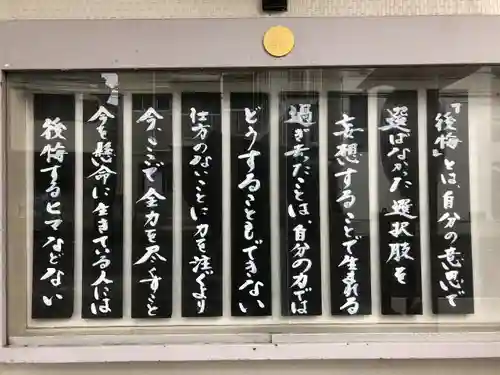 『後悔』とは、自分の意思で
選ばなかった選択肢を
妄想することで生まれる
過ぎ去ったことは、自分の力では
どうすることもできない
仕方のないことに力を注ぐより
今、ここで全力を尽くすこと
今を懸命に生きている人には
後悔するヒマなどない